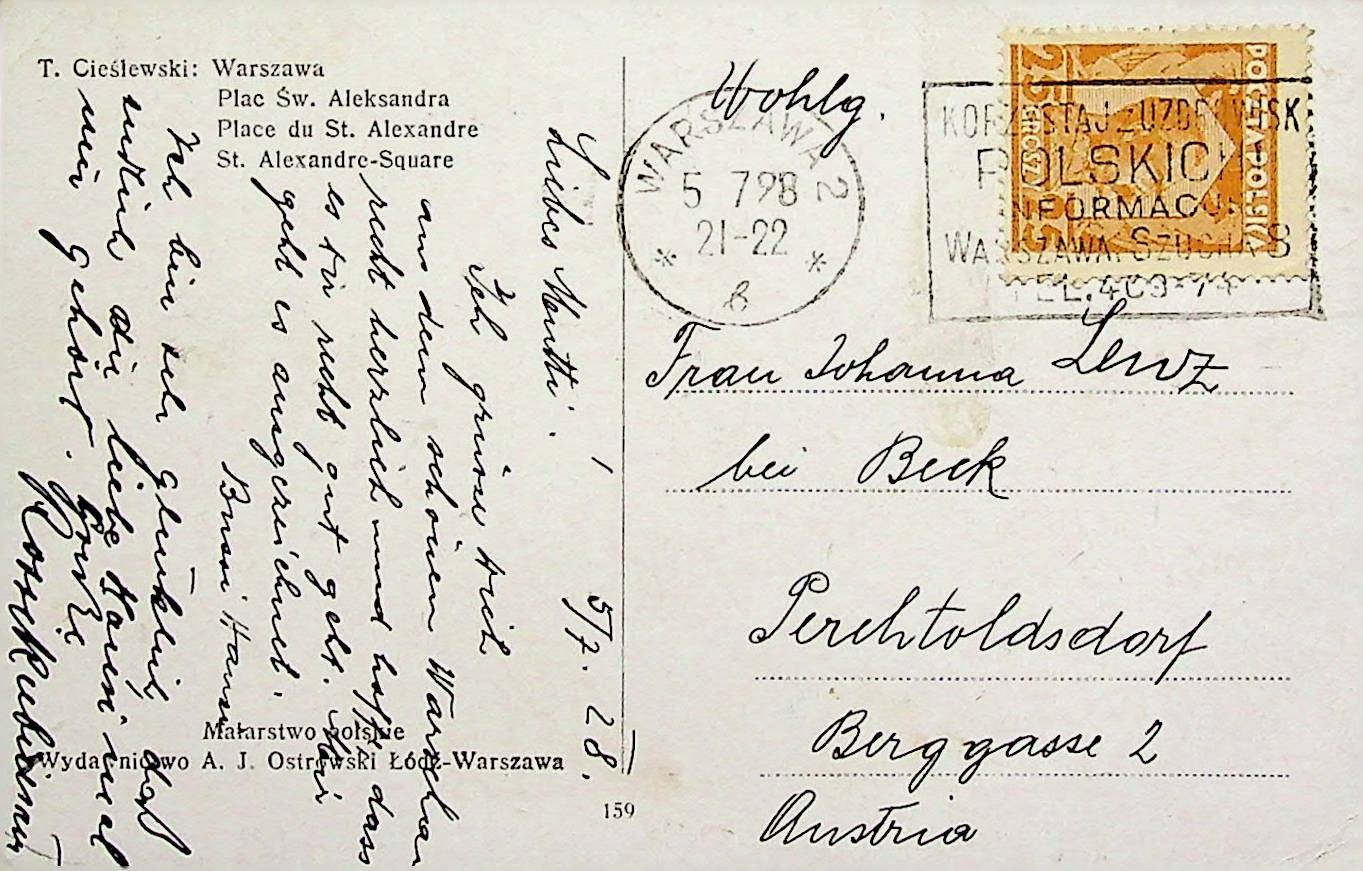 T. Cieślewski: Warszawa
Plac Św. Aleksandra
Place du St. Alexandre
St. Alexandre-Square
5/7. 28.
Liebes Mutti.
Ich grüsse dich
aus dem schönen Warschau
recht herzlich und hoffe dass
es dir recht gut geht. Mir
geht es ausgezeichnet.
Bussi
Ich bin sehr glücklich, daß
endlich die liebe
mir gehört.
Malarstwo polskie
Wydawnictwo A. J. Ostrowski Łódź-Warszawa
159
Wohlg.
WARSZAWA 2
5 7 28
21-22
KORZYSTAJ Z UZDROWISK
POLSKICH
INFORMACJI
WARSZAWA. SZUCHA 8
POCZTA POLSKA
25 GROSZY 25
Frau Johanna Lenz
bei Beck
Perchtoldsdorf
Berggasse 2
Austria